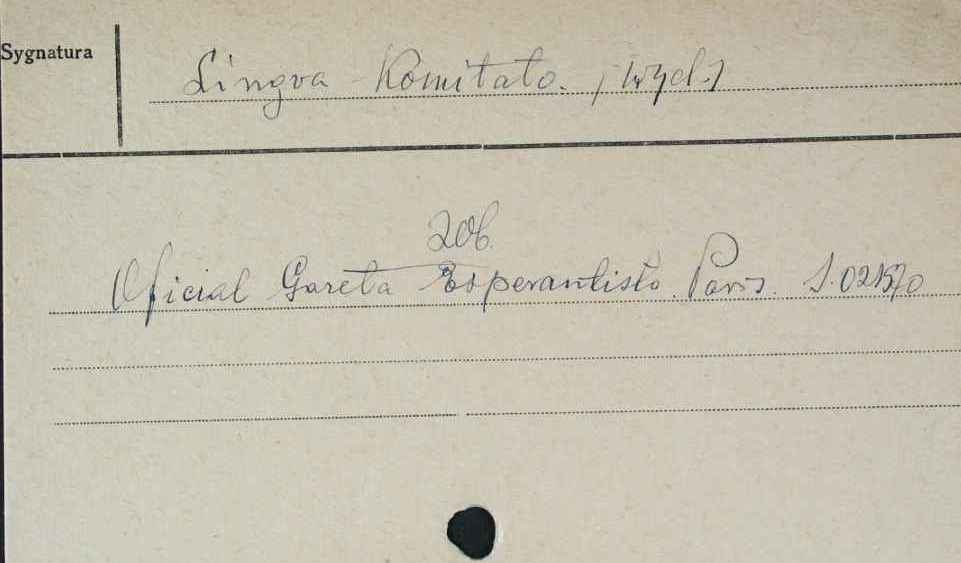 Sygnatura
Lingva Komitato. /wyd./
Zob.
Oficial Gazeta Esperantisto. Paris. S.021570